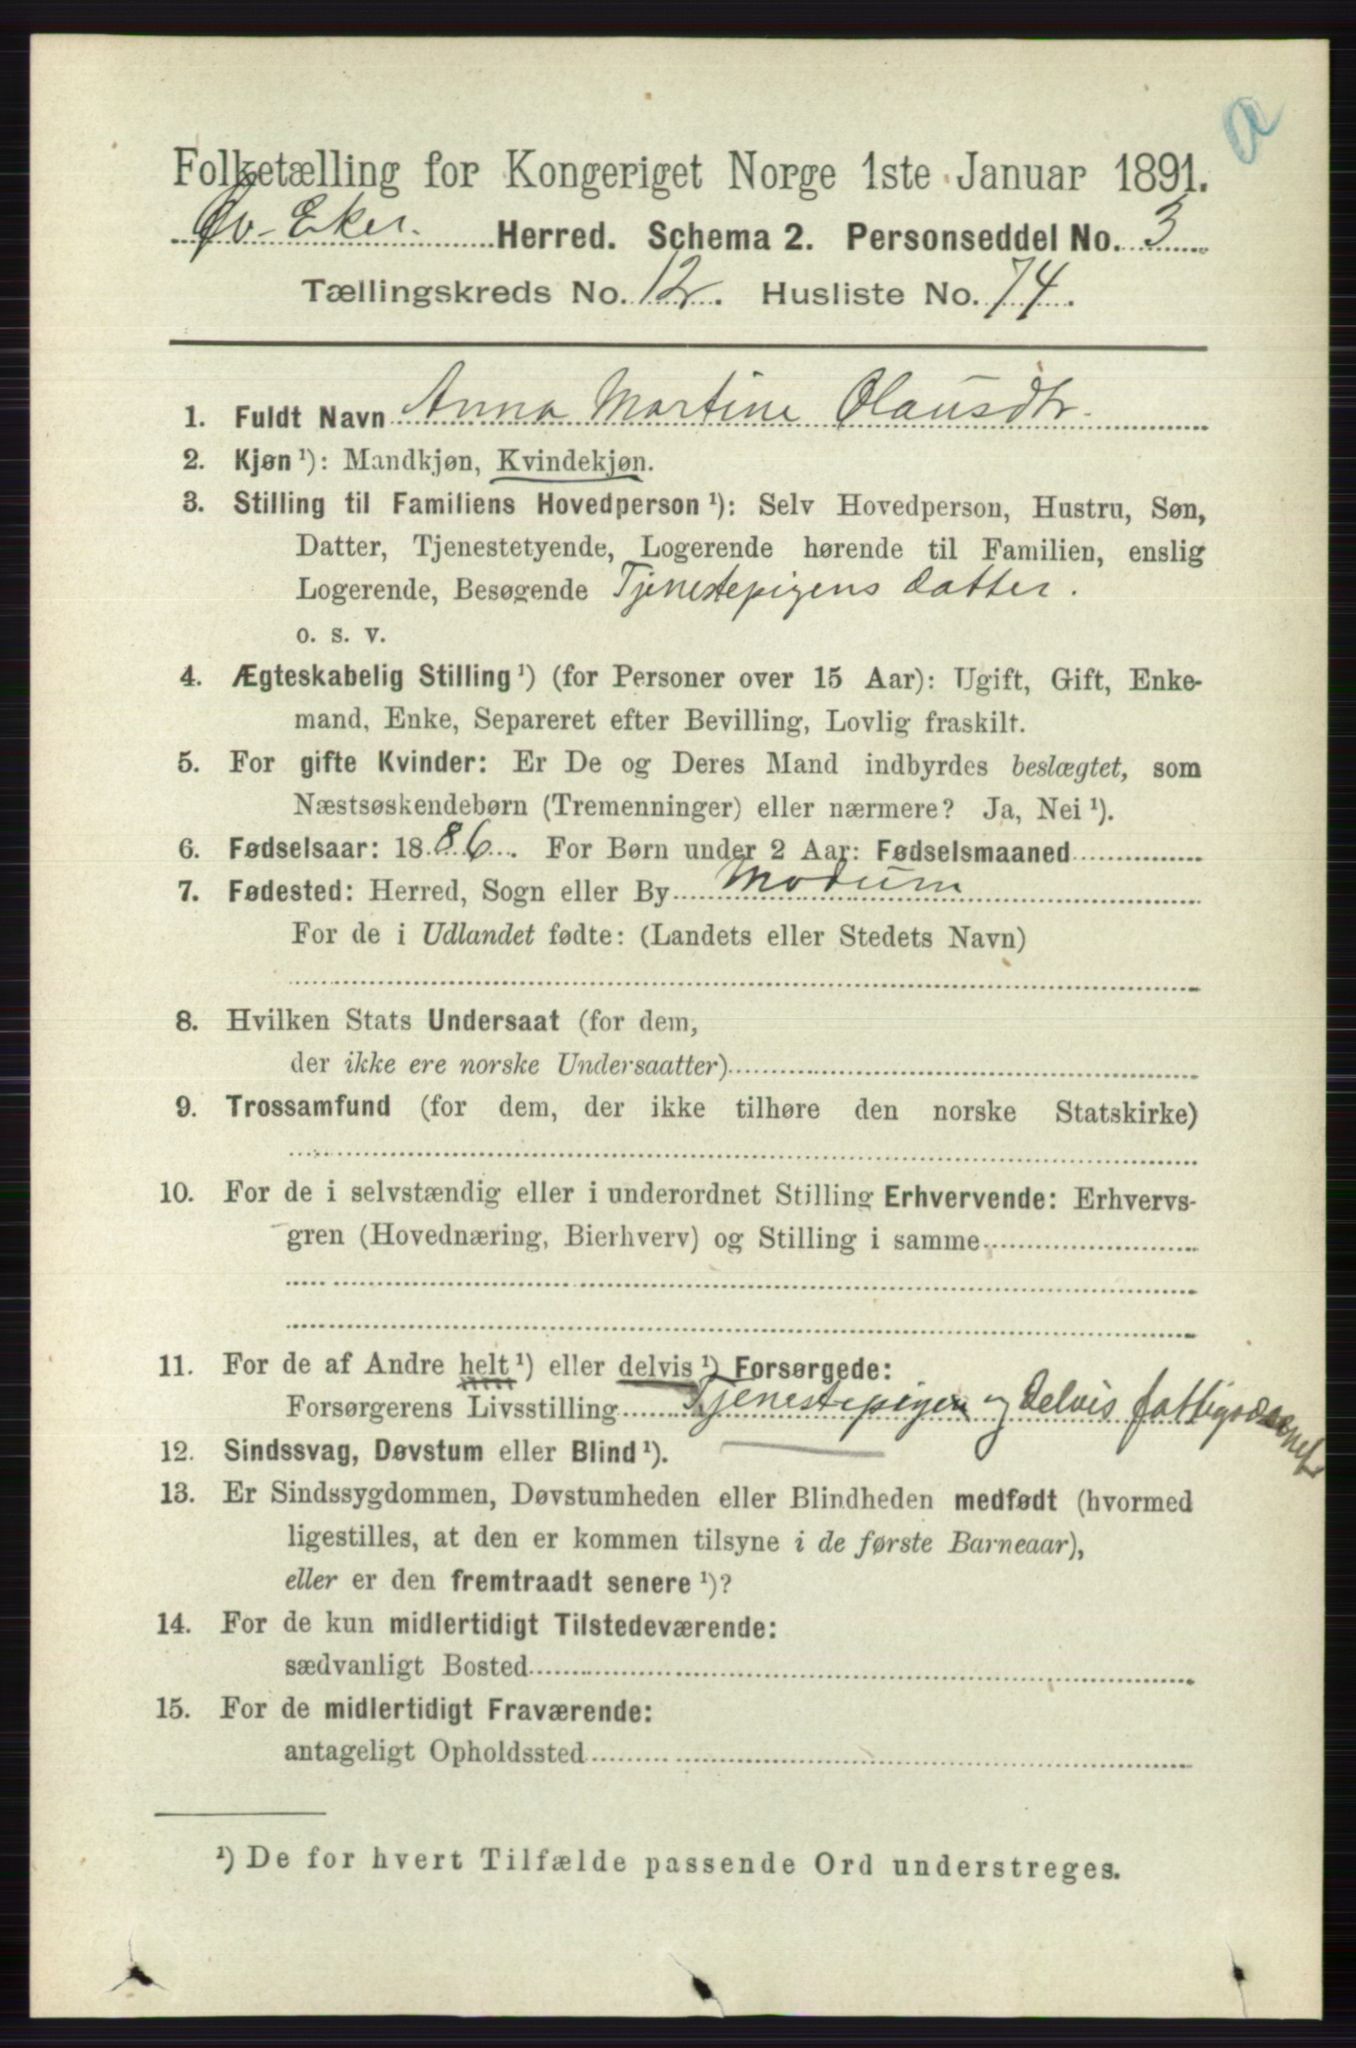 a
Folketælling for Kongeriget Norge 1ste Januar 1891.
Øv-Eker. Herred. Schema 2. Personseddel No. 3
Tællingskreds No. 12. Husliste No. 74.
1. Fuldt Navn Anna Martine Olausdtr.
2. Kjøn ¹): Mandkjøn, Kvindekjøn.
3. Stilling til Familiens Hovedperson ¹): Selv Hovedperson, Hustru, Søn,
Datter, Tjenestetyende, Logerende hørende til Familien, enslig
Logerende, Besøgende Tjenestepigens datter.
o. s. v.
4. Ægteskabelig Stilling ¹) (for Personer over 15 Aar): Ugift, Gift, Enke-
mand, Enke, Separeret efter Bevilling, Lovlig fraskilt.
5. For gifte Kvinder: Er De og Deres Mand indbyrdes beslægtet, som
Næstsøskendebørn (Tremenninger) eller nærmere? Ja, Nei ¹).
6. Fødselsaar: 1886. For Børn under 2 Aar: Fødselsmaaned
7. Fødested: Herred, Sogn eller By Modum
For de i Udlandet fødte: (Landets eller Stedets Navn)
8. Hvilken Stats Undersaat (for dem,
der ikke ere norske Undersaatter)
9. Trossamfund (for dem, der ikke tilhøre den norske Statskirke)
10. For de i selvstændig eller i underordnet Stilling Erhvervende: Erhvervs-
gren (Hovednæring, Bierhverv) og Stilling i samme
11. For de af Andre helt ¹) eller delvis ¹) Forsørgede:
Forsørgerens Livsstilling Tjenestepigen og delvis fattigvæsenet
12. Sindssvag, Døvstum eller Blind ¹).
13. Er Sindssygdommen, Døvstumheden eller Blindheden medfødt (hvormed
ligestilles, at den er kommen tilsyne i de første Barneaar),
eller er den fremtraadt senere ¹)?
14. For de kun midlertidigt Tilstedeværende:
sædvanligt Bosted
15. For de midlertidigt Fraværende:
antageligt Opholdssted
¹) De for hvert Tilfælde passende Ord understreges.